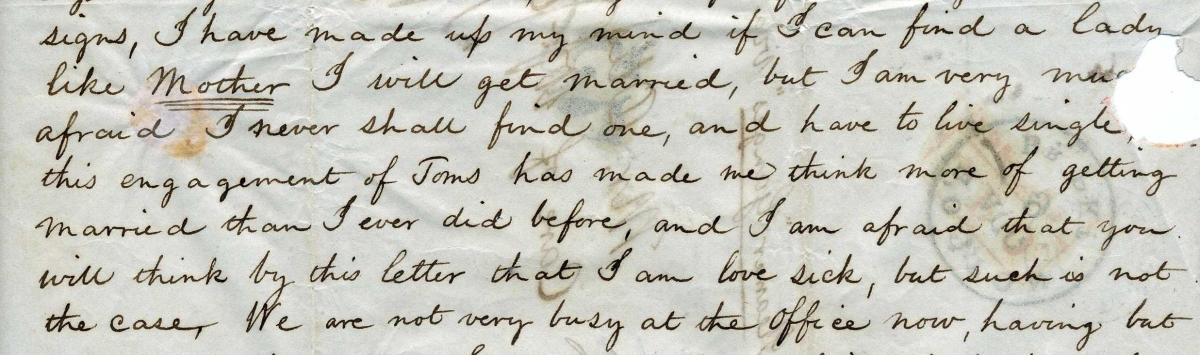 signs, I have made up my mind if I can find a lady
like Mother I will get married, but I am very muc
afraid I never shall find one, and have to live single,
this engagement of Toms has made me think more of getting
married than I ever did before, and I am afraid that you
will think by this letter that I am love sick, but such is not
the case, We are not very busy at the office now, having but